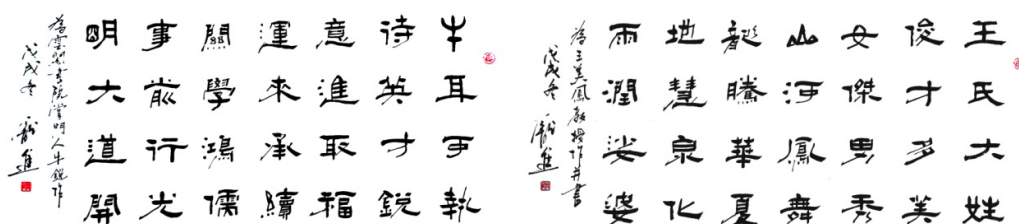 王氏大姓
俊才多美
女傑男秀
山河鳳舞
龍騰華夏
地慧泉化
雨潤娑婆
為王美鳳教授作并書
戊戌冬
牛耳可執
待英才銳
意進取福
運來承續
關學鴻儒
事前行光
明大道開
為雲書院掌門人牛銳作
戊戌冬